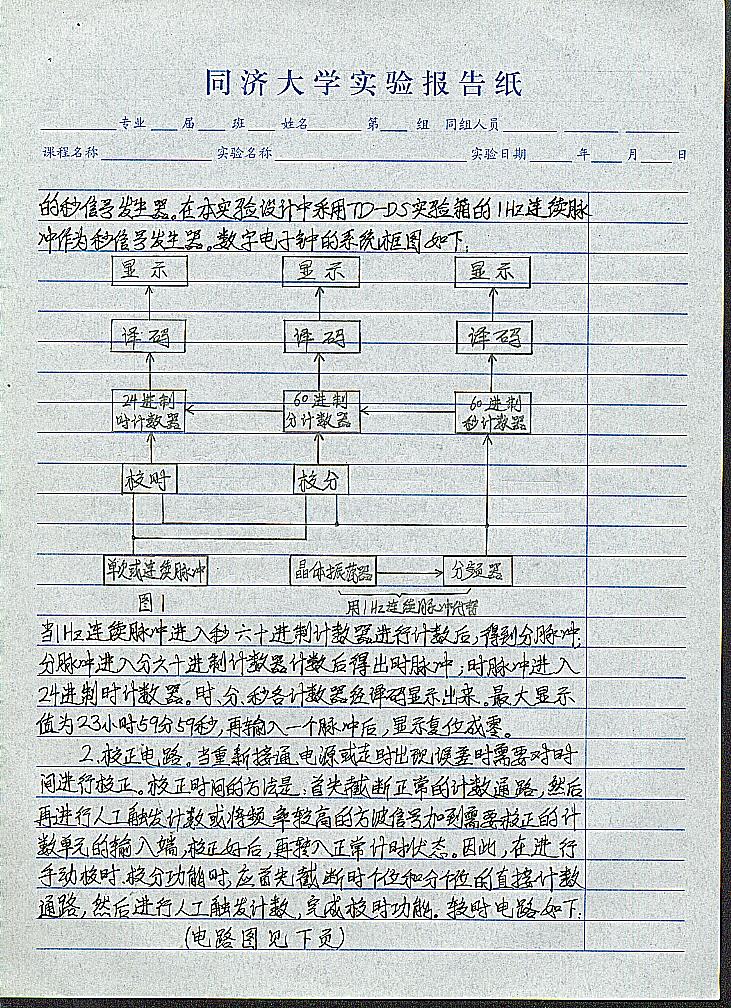 同济大学实验报告纸
专业 届 班 姓名 第 组 同组人员
课程名称 实验名称 实验日期 年 月 日
的秒信号发生器。在本实验设计中采用TD-DS实验箱的1Hz连续脉
冲作为秒信号发生器。数字电子钟的系统框图如下:
显示 显示 显示
译码 译码 译码
24进制 60进制 60进制
时计数器 分计数器 秒计数器
校时 校分
单次或连续脉冲 晶体振荡器 分频器
图1 用1Hz连续脉冲代替
当1Hz连续脉冲进入秒六十进制计数器进行计数后,得到分脉冲;
分脉冲进入分六十进制计数器计数后得出时脉冲;时脉冲进入
24进制时计数器。时、分、秒各计数器经译码显示出来。最大显示
值为23小时59分59秒,再输入一个脉冲后,显示复位成零。
2.校正电路。当重新接通电源或走时出现误差时需要对时
间进行校正。校正时间的方法是:首先截断正常的计数通路,然后
再进行人工触发计数或将频率较高的方波信号加到需要校正的计
数单元的输入端,校正好后,再转入正常计时状态。因此,在进行
手动校时、校分功能时,应首先截断时个位和分个位的直接计数
通路,然后进行人工触发计数,完成校时功能。较时电路如下:
(电路图见下页)